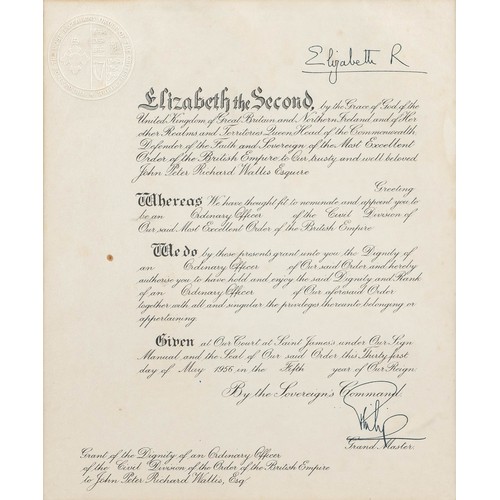 Elizabeth R
Elizabeth the Second, by the Grace of God of the
United Kingdom of Great Britain and Northern Ireland and of Her
other Realms and Territories Queen, Head of the Commonwealth,
Defender of the Faith and Sovereign of the Most Excellent
Order of the British Empire to Our trusty and well beloved
John Peter Richard Wallis Esquire
Greeting
Whereas We have thought fit to nominate and appoint you to
be an Ordinary Officer of the Civil Division of
Our said Most Excellent Order of the British Empire
We do by these presents grant unto you the Dignity of
an Ordinary Officer of Our said Order and hereby
authorise you to have hold and enjoy the said Dignity and Rank
of an Ordinary Officer of Our aforesaid Order
together with all and singular the privileges thereunto belonging or
appertaining.
Given at Our Court at Saint James's under Our Sign
Manual and the Seal of Our said Order this Thirty first
day of May 1956 in the Fifth year of Our Reign.
By the Sovereign's Command.
Philip
Grand Master.
Grant of the Dignity of an Ordinary Officer
of the Civil Division of the Order of the British Empire
to John Peter Richard Wallis, Esq.